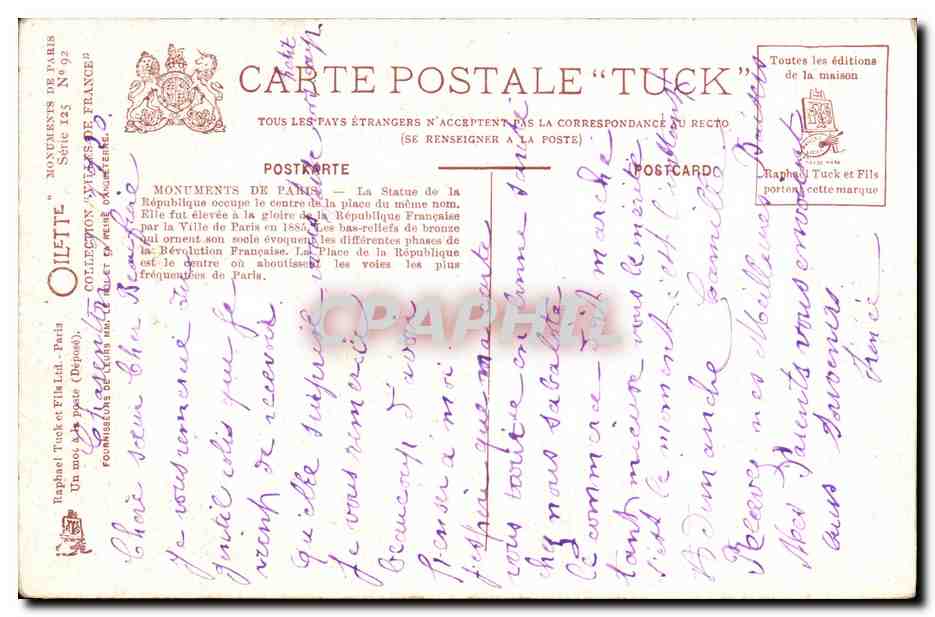 CARTE POSTALE "TUCK"
TOUS LES PAYS ÉTRANGERS N'ACCEPTENT PAS LA CORRESPONDANCE AU RECTO
(SE RENSEIGNER A LA POSTE)
POSTKARTE
POSTCARD
Toutes les éditions
de la maison
Raphael Tuck et Fils
portent cette marque
MONUMENTS DE PARIS. — La Statue de la
République occupe le centre de la place du même nom.
Elle fut élevée à la gloire de la République Française
par la Ville de Paris en 1885. Les bas-reliefs de bronze
qui ornent son socle évoquent les différentes phases de
la Révolution Française. La Place de la République
est le centre où aboutissent les voies les plus
fréquentées de Paris.
MONUMENTS DE PARIS
Série 125 No 92
"OILETTE"
COLLECTION "VILLES DE FRANCE"
FOURNISSEURS DE LEURS MM. LE ROI ET LA REINE D'ANGLETERRE.
Raphael Tuck et Fils Ltd.-Paris
Un mot à la poste (Déposé).
Charenton
Chère sœur Cher Beaufrère
je vous remercie
colis que je
vient de recevoir
qu'elle surprise
je vous remercie
beaucoup d'avoir
penser à moi
j'espère que ma
vous en bonne santé
chez nous
le commerce marche
tant mieux vous le mérité
c'est le moment
Dimanche Camille
Recevez mes Meilleures Baisers
Mes Parents vous envoient
Leurs Souvenirs
Irénée
CPAPHIL